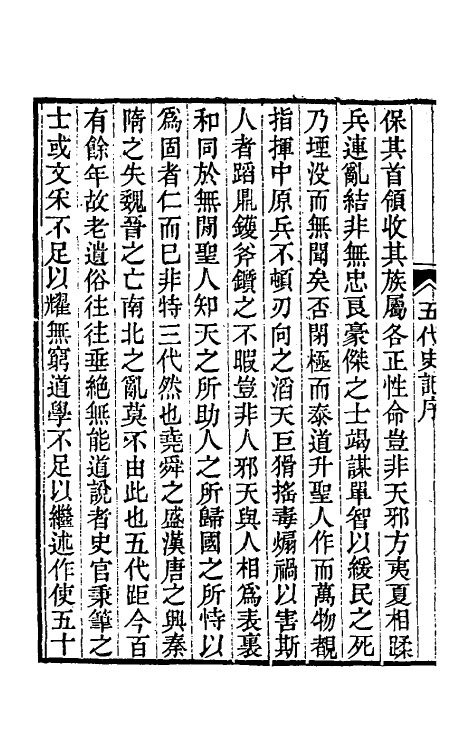 五代史記序
保其首領收其族屬各正性命豈非天邪方夷夏相蹂
兵連亂結非無忠良豪傑之士竭謀單智以緩民之死
乃堙没而無聞矣否閉極而泰道升聖人作而萬物覩
指揮中原兵不頓刃向之滔天巨猾搖毒煽禍以害斯
人者蹈鼎鑊斧鑕之不暇豈非人邪天與人相爲表裏
和同於無閒聖人知天之所助人之所歸國之所恃以
爲固者仁而已非特三代然也堯舜之盛漢唐之興秦
隋之失魏晉之亡南北之亂莫不由此也五代距今百
有餘年故老遺俗往往垂絕無能道說者史官秉筆之
士或文采不足以耀無窮道學不足以繼述作使五十